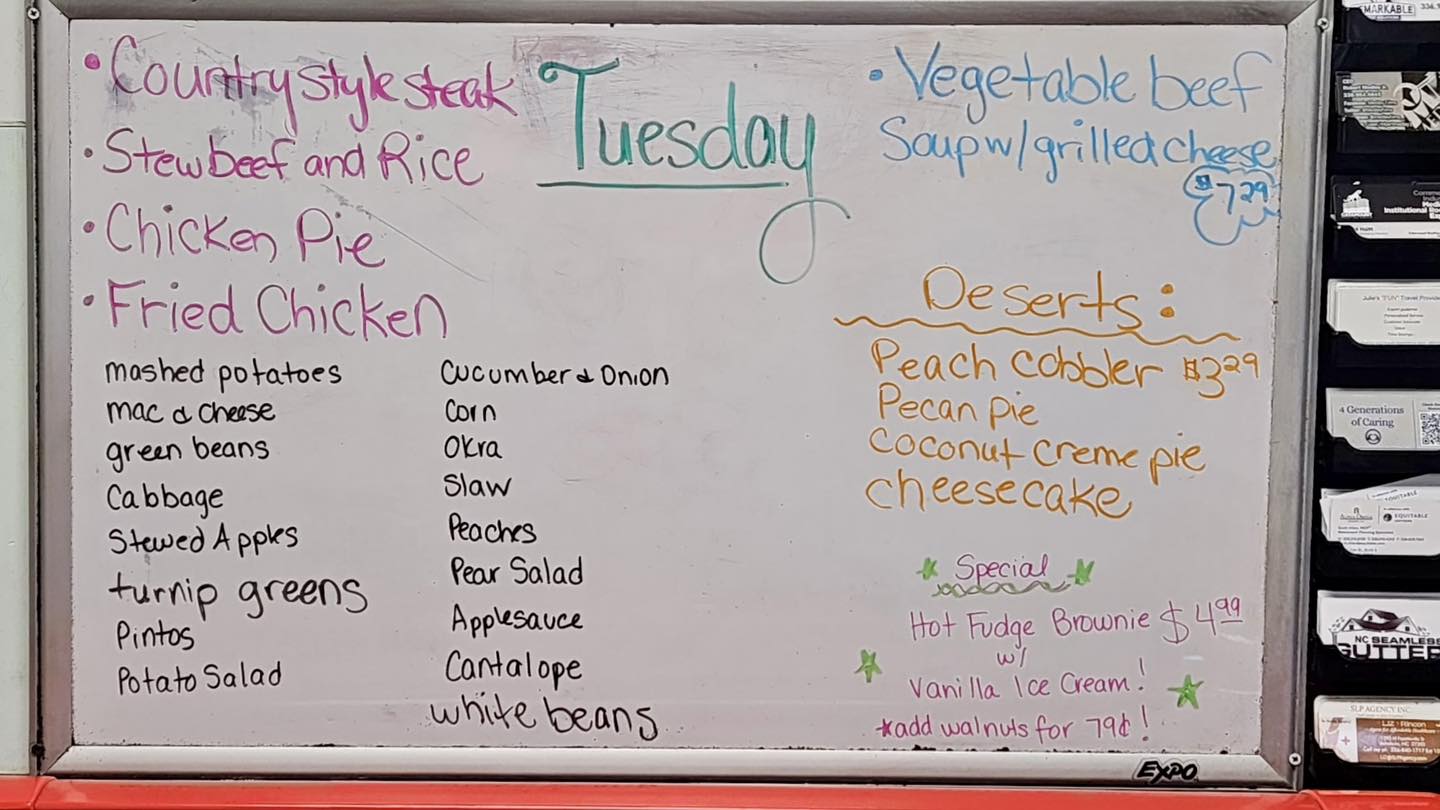 • Country style steak
• Stew beef and Rice
• Chicken Pie
• Fried Chicken
Tuesday
• Vegetable beef
Soup w/ grilled cheese
$7.29
mashed potatoes
mac & cheese
green beans
Cabbage
Stewed Apples
turnip greens
Pintos
Potato Salad
Cucumber & Onion
Corn
Okra
Slaw
Peaches
Pear Salad
Applesauce
Cantalope
white beans
Deserts:
Peach cobbler $3.29
Pecan pie
Coconut creme pie
cheesecake
Special
Hot Fudge Brownie $4.99
w/
Vanilla Ice Cream!
*add walnuts for 79¢!
EXPO
MARKABLE
Julie's "FUN" Travel
4 Generations
of Caring
EQUITABLE
NC SEAMLESS
GUTTER
SLP AGENCY INC
Liz Rincon